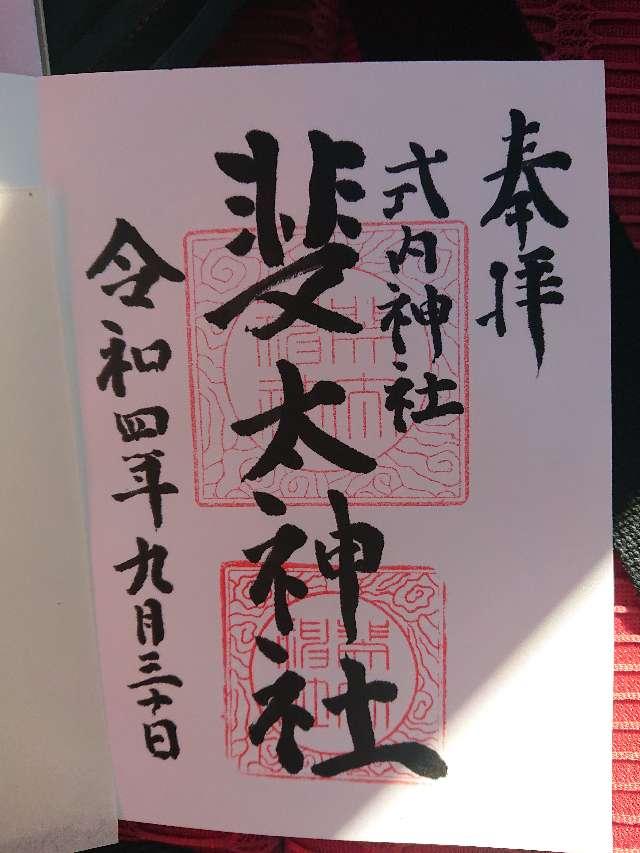 奉拝
式内神社
斐太神社
令和四年九月三十日